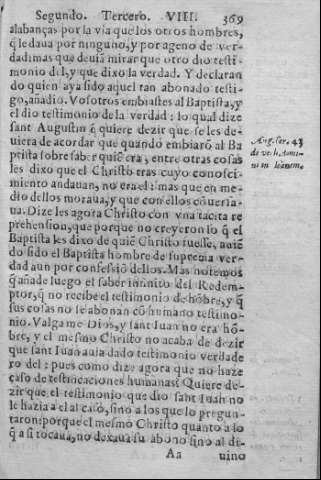 Segundo. Tercero. VIII. 369
alabanças por la via que los otros hombres,
q̃ le daua por ninguno, y por ageno de ver-
dad: mas que deuiã mirar que otro dio testi-
monio del, y que dixo la verdad. Y declaran
do quien aya sido aquel tan abonado testi-
go, añadio. Vosotros embiastes al Baptista, y
el dio testimonio de la verdad: lo qual dize
sant Augustin q̃ quiere dezir que se les de-
uiera de acordar que quando embiarõ al Ba
ptista sobre saber quiẽ era, entre otras cosas
les dixo que el Christo tras cuyo conosci-
miento andauan, no era el: mas que en me-
dio dellos moraua, y que con ellos cõuersa-
ua. Dize les agora Christo con vna tacita re
prehension, que porque no creyeron lo q̃ el
Baptista les dixo de quiẽ Christo fuesse, auiẽ
do sido el Baptista hombre de suprema ver-
dad aun por confessiõ dellos. Mas notemos
q̃ añade luego el saber infinito del Redem-
ptor, q̃ no recibe el testimonio de hõbre, y q̃
sus cosas no se abonan cõ humano testimo-
nio. Valgame Dios, y sant Iuan no era hõ-
bre, y el mesmo Christo no acaba de dezir
que sant Iuan auia dado testimonio verdade
ro del: pues como dize agora que no haze
caso de testificaciones humanas? Quiere de-
zir que el testimonio que dio sant Iuan no
le hazia a el al caso, sino a los que lo pregun-
taron: porque el mesmo Christo quanto a lo
q̃ a si tocaua, no dexaua su abono sino al di-
Aa uino
Aug. ser. 43
de verb. domi-
ni in